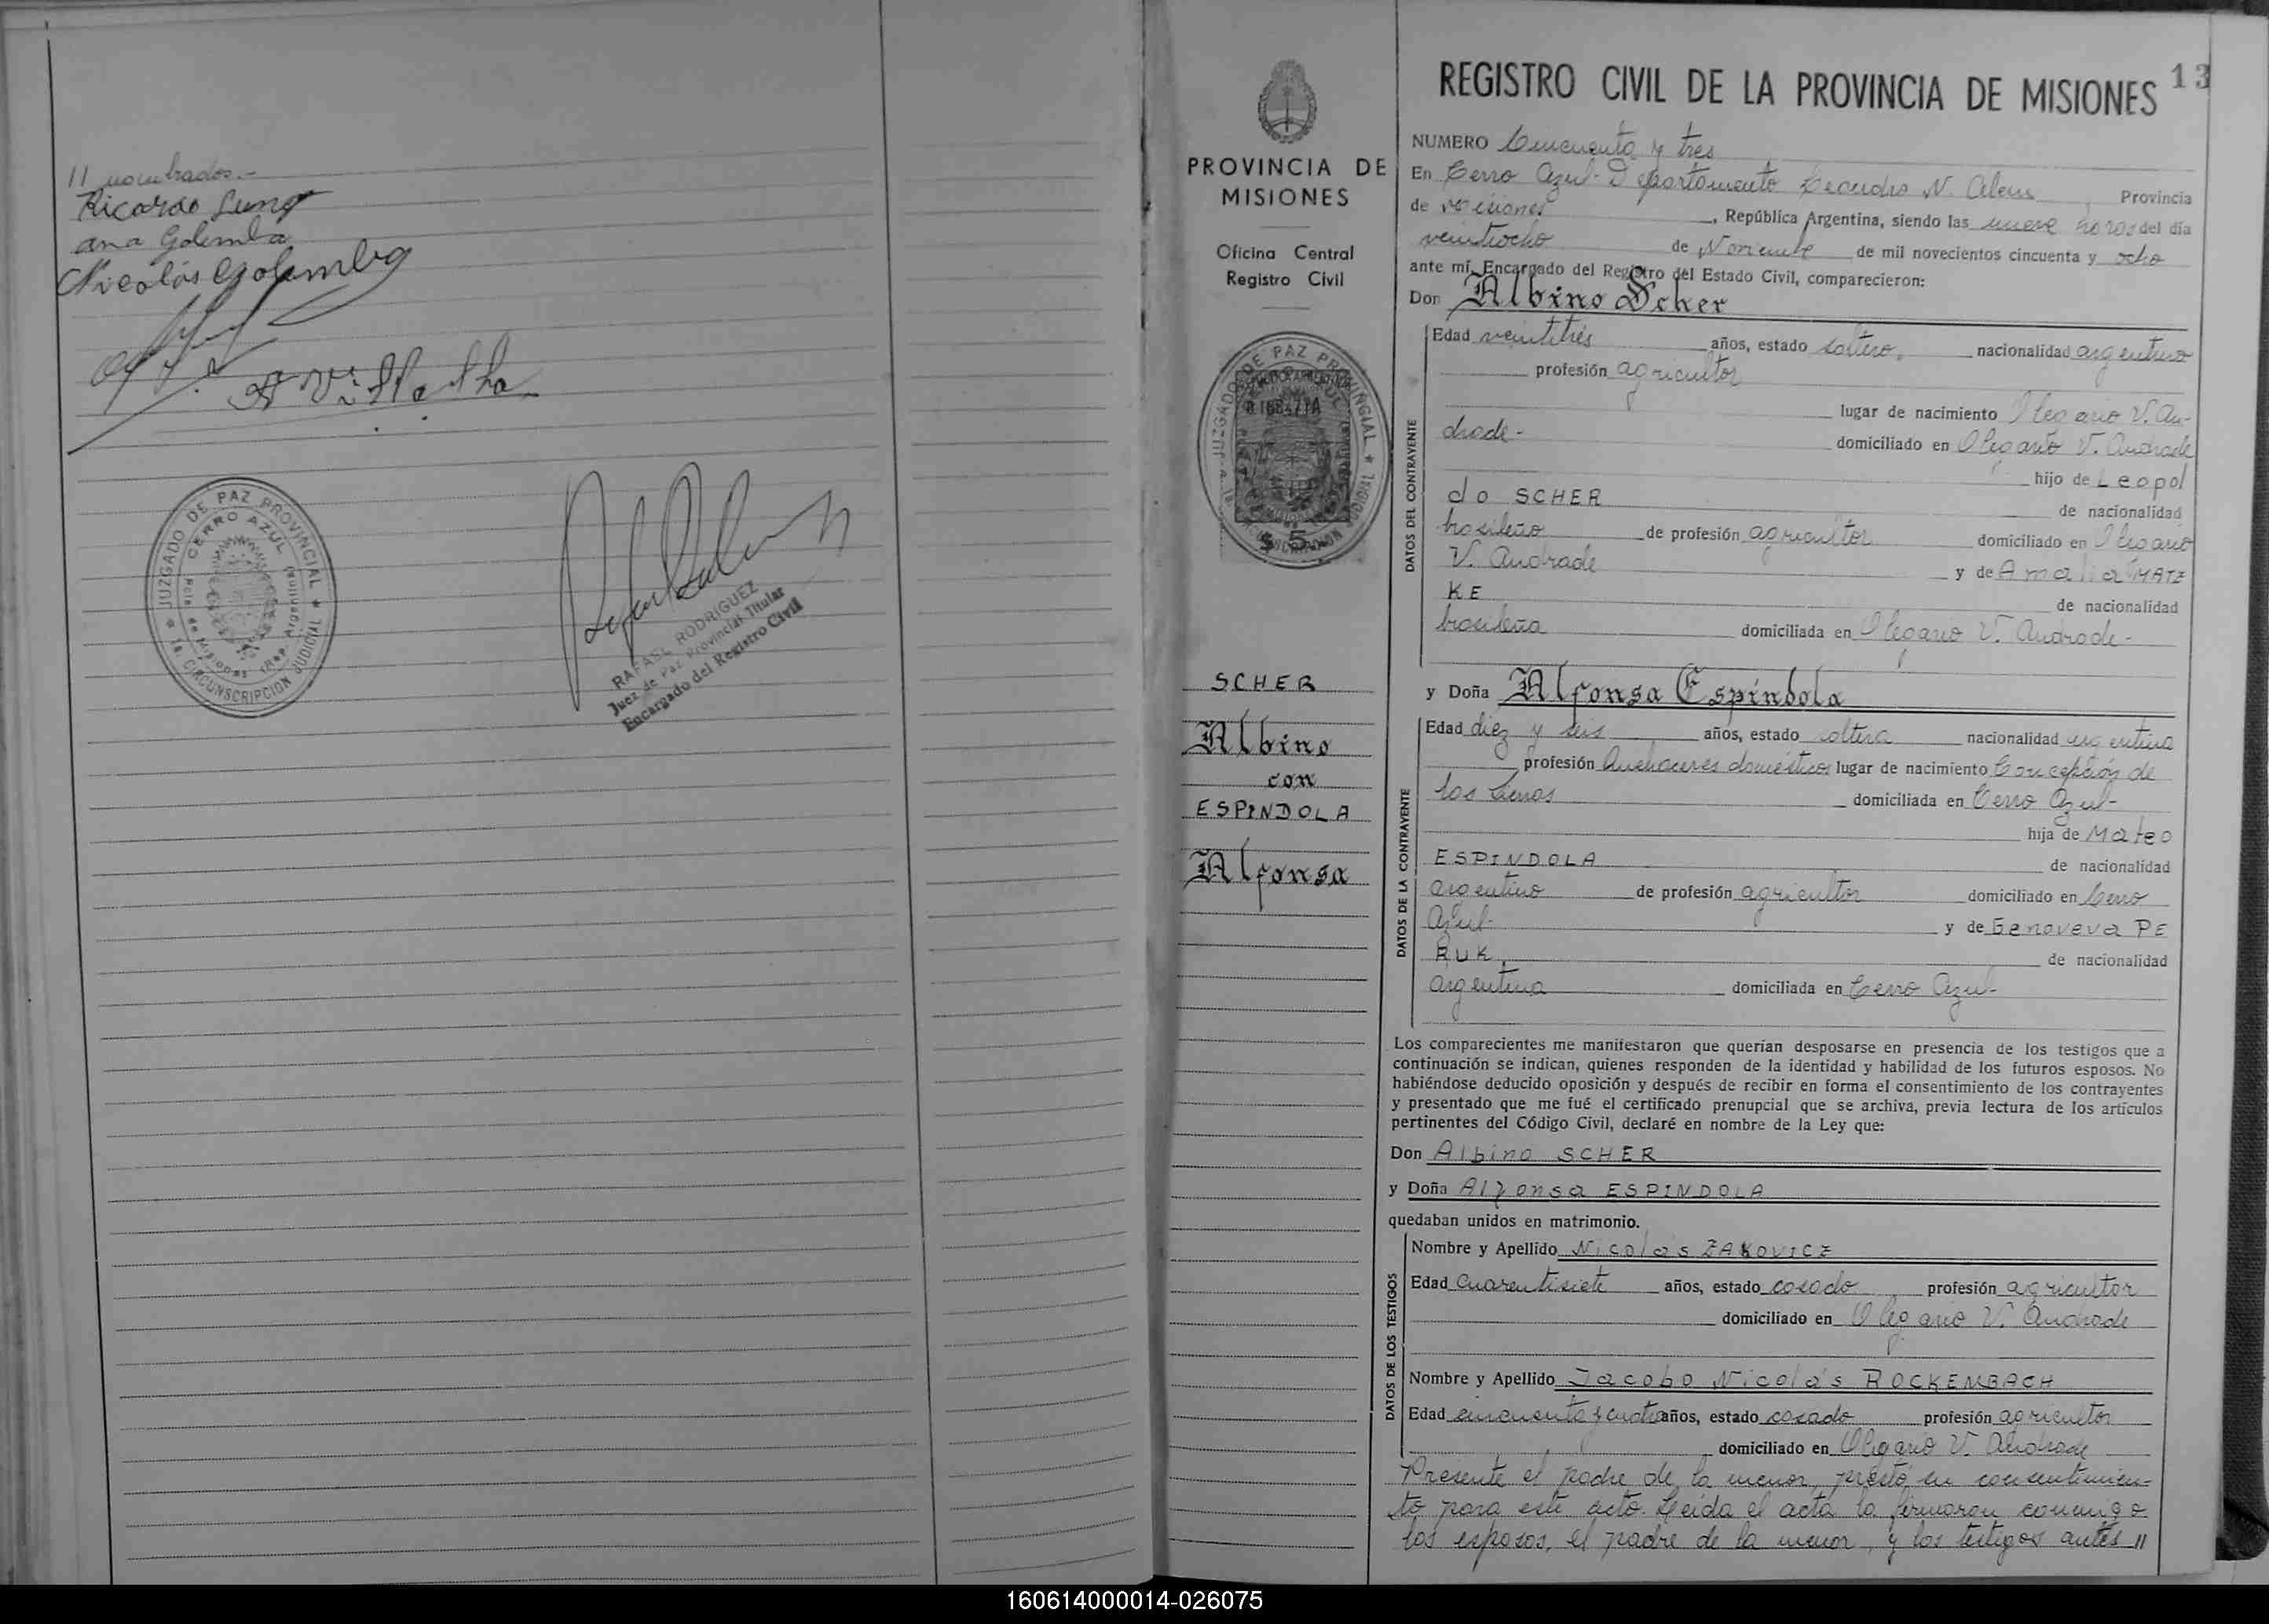 11 nombrados.-
Ricardo Lung
ana Golemba
Nicolás Golemba
A Villalha
JUZGADO DE PAZ PROVINCIAL
CERRO AZUL
Pcia de Misiones (Rep. Argentina)
1a. CIRCUNSCRIPCION JUDICIAL
RAFAEL RODRIGUEZ
Juez de Paz Provincial Titular
Encargado del Registro Civil
PROVINCIA DE
MISIONES
Oficina Central
Registro Civil
JUZGADO DE PAZ PROVINCIAL
CIRCUNSCRIPCION JUDICIAL
$ 5
SCHER
Albino
con
ESPINDOLA
Alfonsa
13
REGISTRO CIVIL DE LA PROVINCIA DE MISIONES
NUMERO Cincuenta y tres
En Cerro Azul- Departamento Leandro N. Alem Provincia
de Misiones, República Argentina, siendo las nueve horas del día
veintiocho de Noviembre de mil novecientos cincuenta y ocho
ante mí, Encargado del Registro del Estado Civil, comparecieron:
Don Albino Scher
DATOS DEL CONTRAYENTE
Edad veintitrés años, estado soltero, nacionalidad argentino
profesión agricultor
lugar de nacimiento Olegario V. An-
drade- domiciliado en Olegario V. Andrade
hijo de Leopol
do SCHER de nacionalidad
brasileño de profesión agricultor domiciliado en Olegario
V. Andrade y de Amalia MATZ
KE de nacionalidad
brasileña domiciliada en Olegario V. Andrade-
y Doña Alfonsa Espíndola
DATOS DE LA CONTRAYENTE
Edad diez y seis años, estado soltera nacionalidad argentina
profesión Quehaceres domésticos lugar de nacimiento Concepción de
las Sierras domiciliada en Cerro Azul-
hija de Mateo
ESPINDOLA de nacionalidad
argentino de profesión agricultor domiciliado en Cerro
Azul- y de Genoveva PE
RUK, de nacionalidad
argentina domiciliada en Cerro Azul-
Los comparecientes me manifestaron que querían desposarse en presencia de los testigos que a
continuación se indican, quienes responden de la identidad y habilidad de los futuros esposos. No
habiéndose deducido oposición y después de recibir en forma el consentimiento de los contrayentes
y presentado que me fué el certificado prenupcial que se archiva, previa lectura de los artículos
pertinentes del Código Civil, declaré en nombre de la Ley que:
Don Albino SCHER
y Doña Alfonsa ESPINDOLA
quedaban unidos en matrimonio.
DATOS DE LOS TESTIGOS
Nombre y Apellido Nicolás ZAKOVICZ
Edad cuarentisiete años, estado casado profesión agricultor
domiciliado en Olegario V. Andrade
Nombre y Apellido Jacobo Nicolás ROCKENBACH
Edad cincuenta y cuatro años, estado casado profesión agricultor
domiciliado en Olegario V. Andrade
Presente el padre de la menor, prestó su consentimien-
to para este acto. Leída el acta la firmaron conmigo
los esposos, el padre de la menor, y los testigos antes 11
160614000014-026075